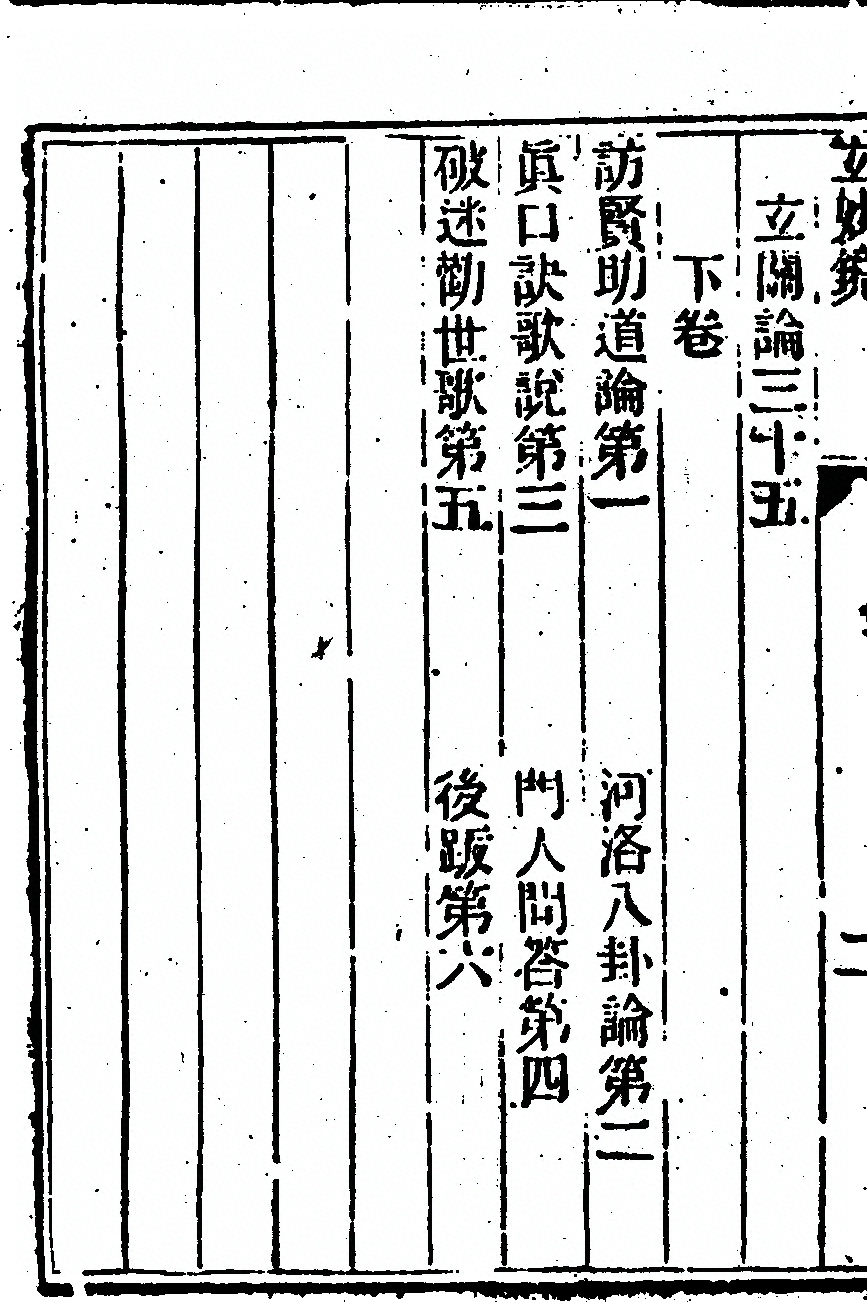 立關論三十五
下卷
訪賢助道論第一 河洛八卦論第二
眞口訣歌說第三 門人問答第四
破迷勸世歌第五 後跋第六